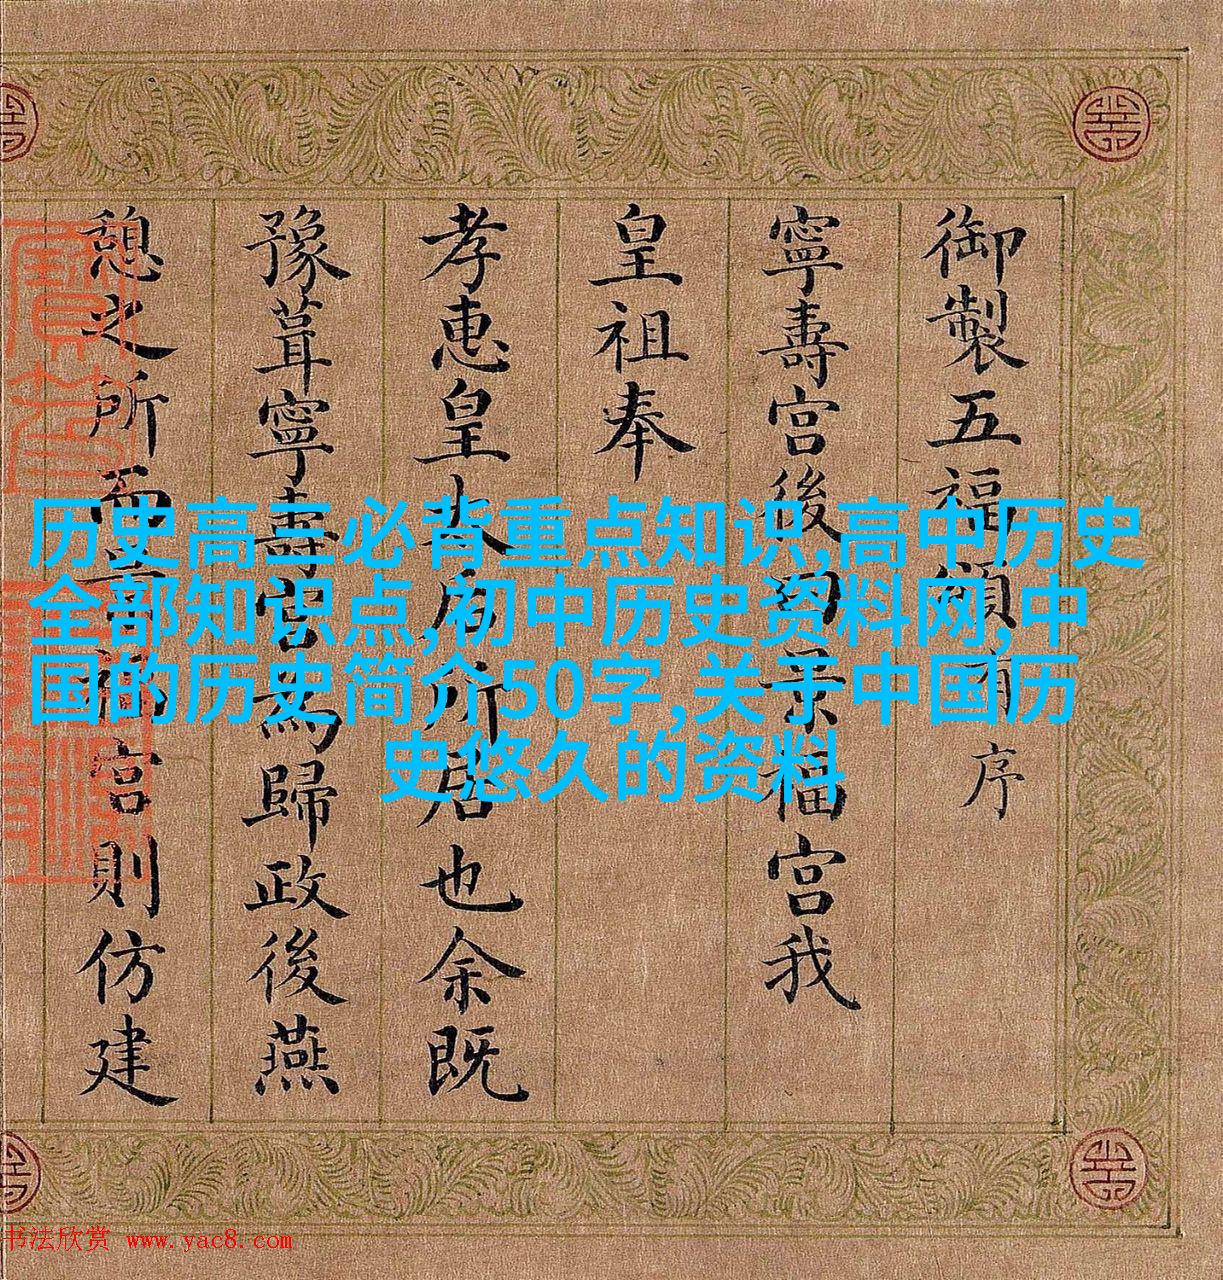 御製五福頌有序
寧壽宮後曰景福宮我
皇祖奉
孝惠皇太后所居也余既
豫葺寧壽宮為歸政後燕
憩之所而景福宮則仿建
历史高三必背重点知识,高中历史
全部知识点,初中历史资料网,中
国的历史简介50字,关于中国历
史悠久的资料
书法欣赏 www.yac8.com